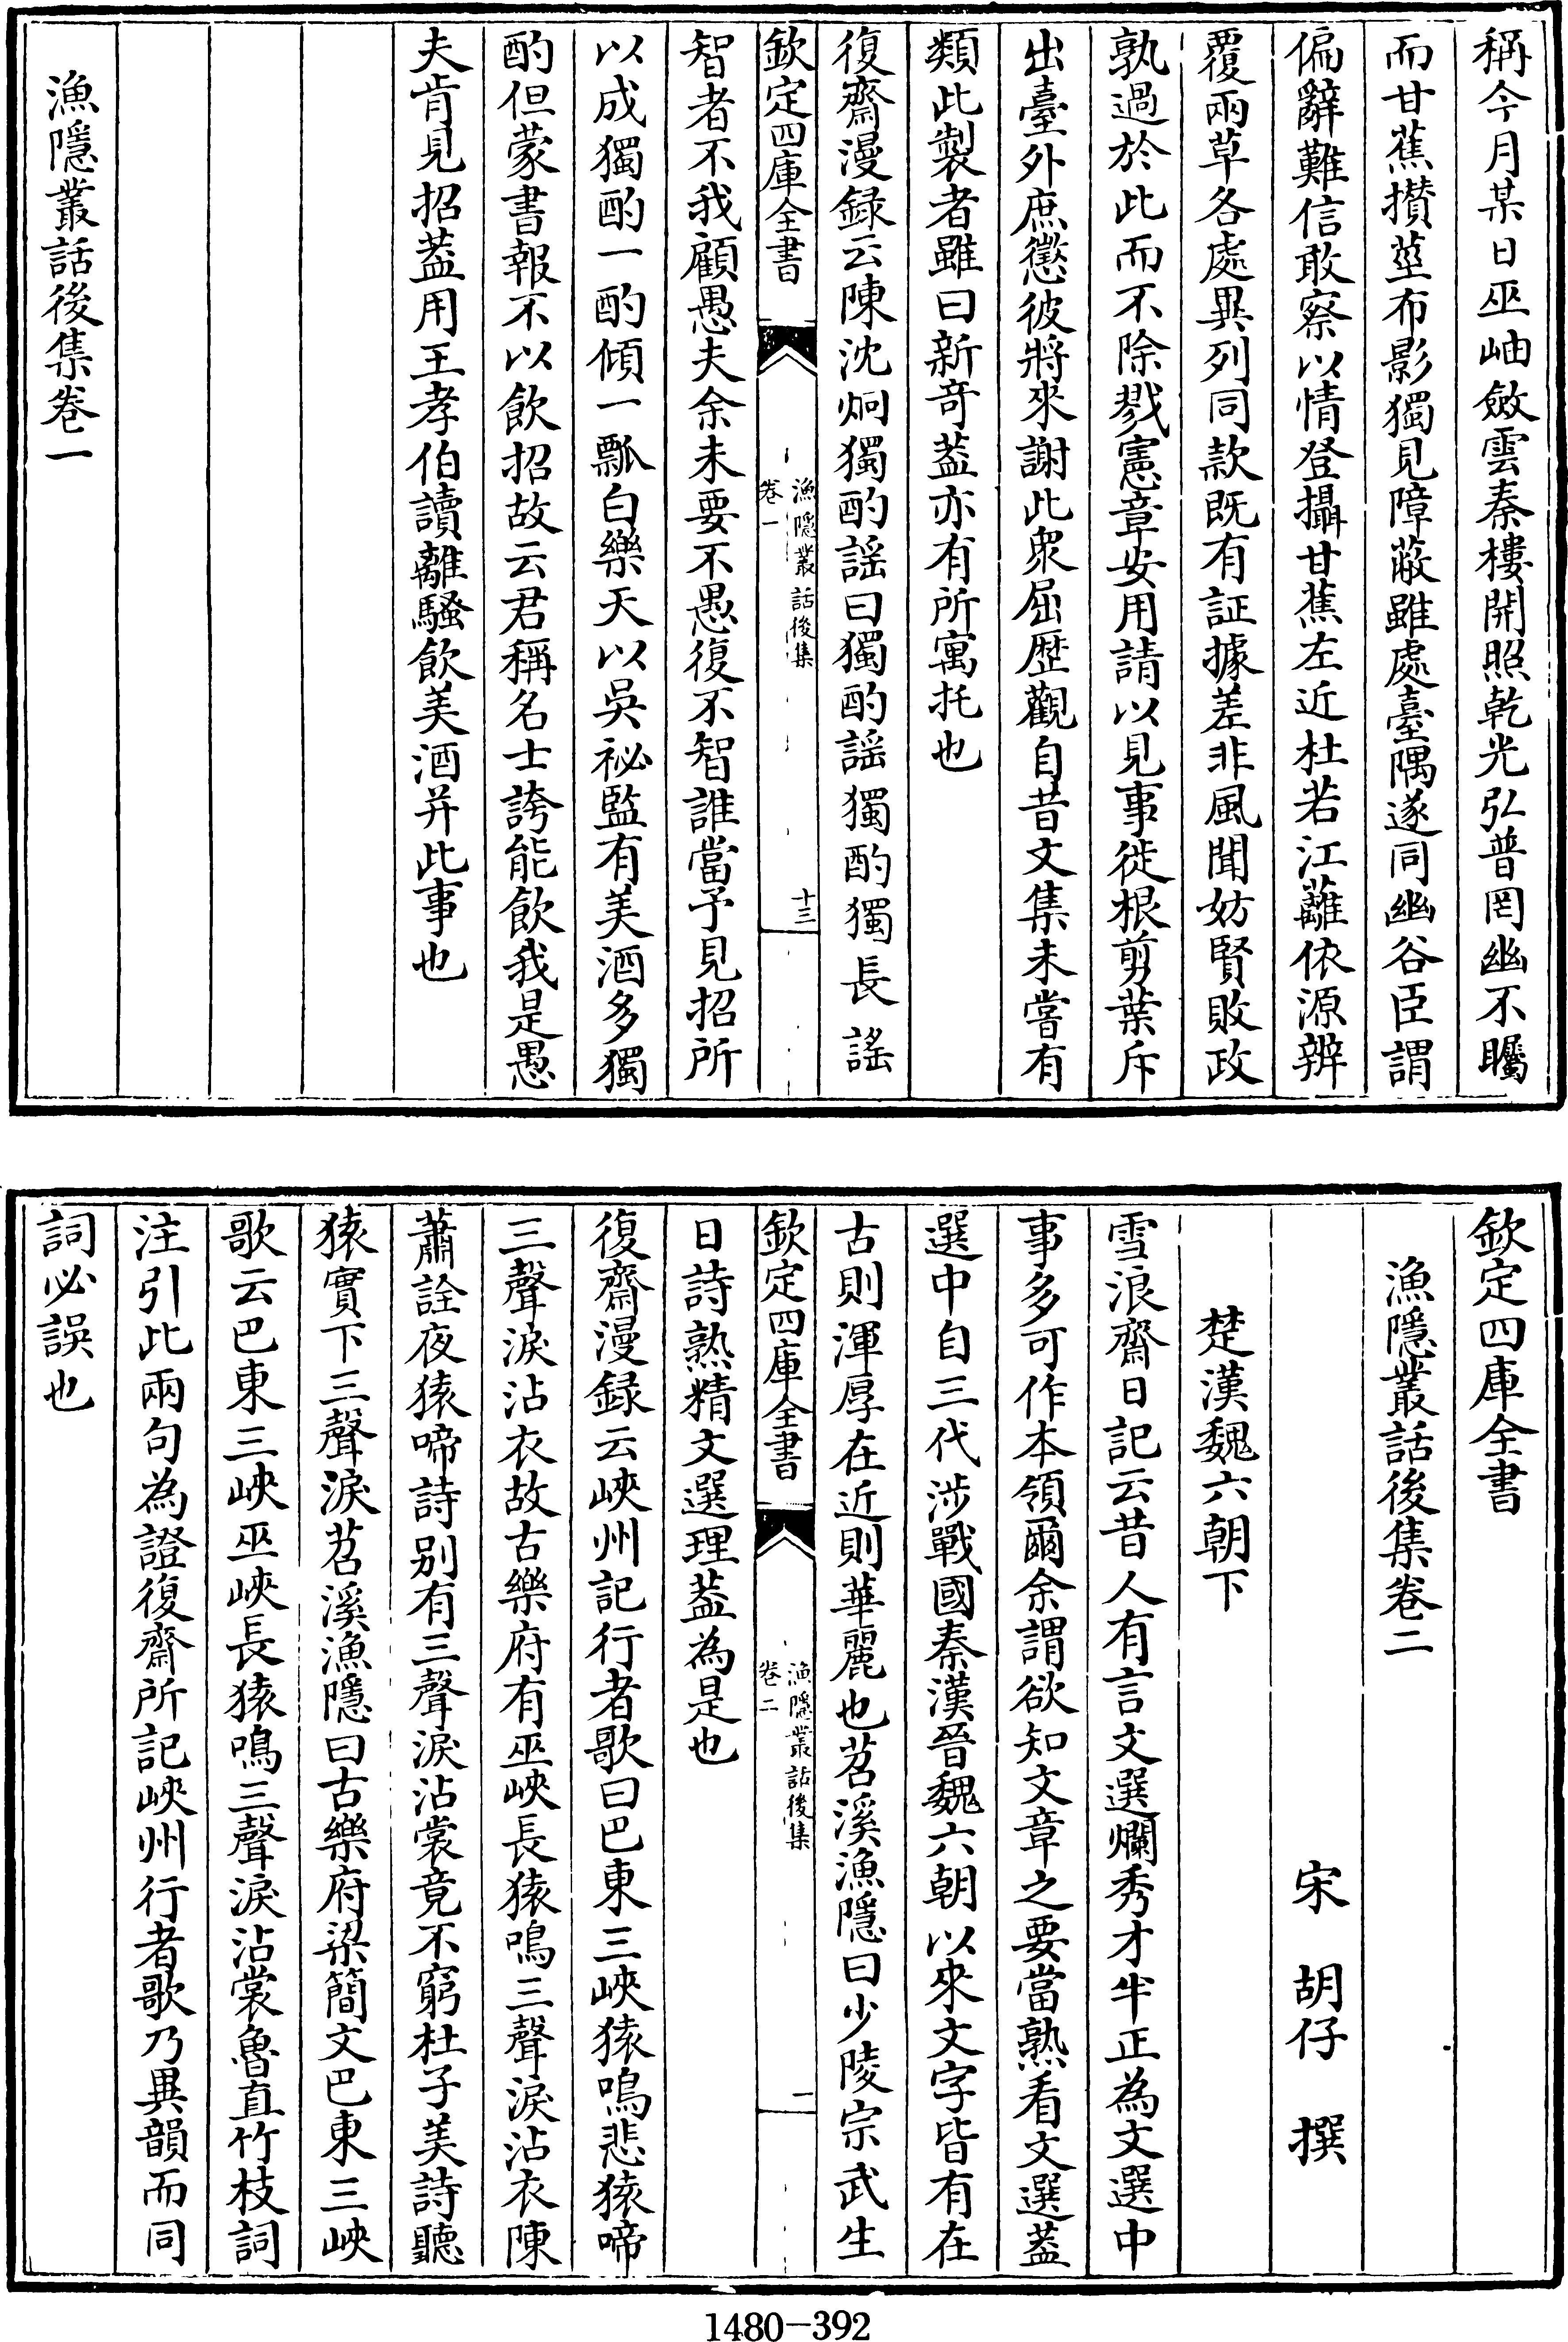 稱今月某日巫岫斂雲秦樓開照乾光弘普罔幽不矚
而甘蕉攅莖布影獨見障蔽雖處臺隅遂同幽谷臣謂
偏辭難信敢察以情登攝甘蕉左近杜若江蘺依源辨
覆兩草各處異列同款既有証據差非風聞妨賢敗政
孰過於此而不除戮憲章安用請以見事徙根剪葉斥
出臺外庶懲彼將來謝此衆屈歴觀自昔文集未嘗有
類此製者雖曰新竒葢亦有所寓托也
復齋漫録云陳沈炯獨酌謡曰獨酌謡獨酌獨長謡
欽定四庫全書
漁隱叢話後集
卷一
十三
智者不我顧愚夫余未要不愚復不智誰當予見招所
以成獨酌一酌傾一瓢白樂天以吳祕監有美酒多獨
酌但蒙書報不以飲招故云君稱名士誇能飲我是愚
夫肯見招葢用王孝伯讀離騷飲美酒并此事也
漁隱叢話後集卷一
欽定四庫全書
漁隱叢話後集卷二
宋 胡仔 撰
楚漢魏六朝下
雪浪齋日記云昔人有言文選爛秀才半正為文選中
事多可作本領爾余謂欲知文章之要當熟看文選葢
選中自三代涉戰國秦漢晉魏六朝以來文字皆有在
古則渾厚在近則華麗也苕溪漁隱曰少陵宗武生
欽定四庫全書
漁隱叢話後集
卷二
一
日詩熟精文選理葢為是也
復齋漫録云峽州記行者歌曰巴東三峽猿鳴悲猿啼
三聲淚沾衣故古樂府有巫峽長猿鳴三聲淚沾衣陳
蕭詮夜猿啼詩别有三聲淚沾裳竟不窮杜子美詩聽
猿實下三聲淚苕溪漁隱曰古樂府梁簡文巴東三峽
歌云巴東三峽巫峽長猿鳴三聲淚沾裳魯直竹枝詞
注引此兩句為證復齋所記峽州行者歌乃異韻而同
詞必誤也
1480-392